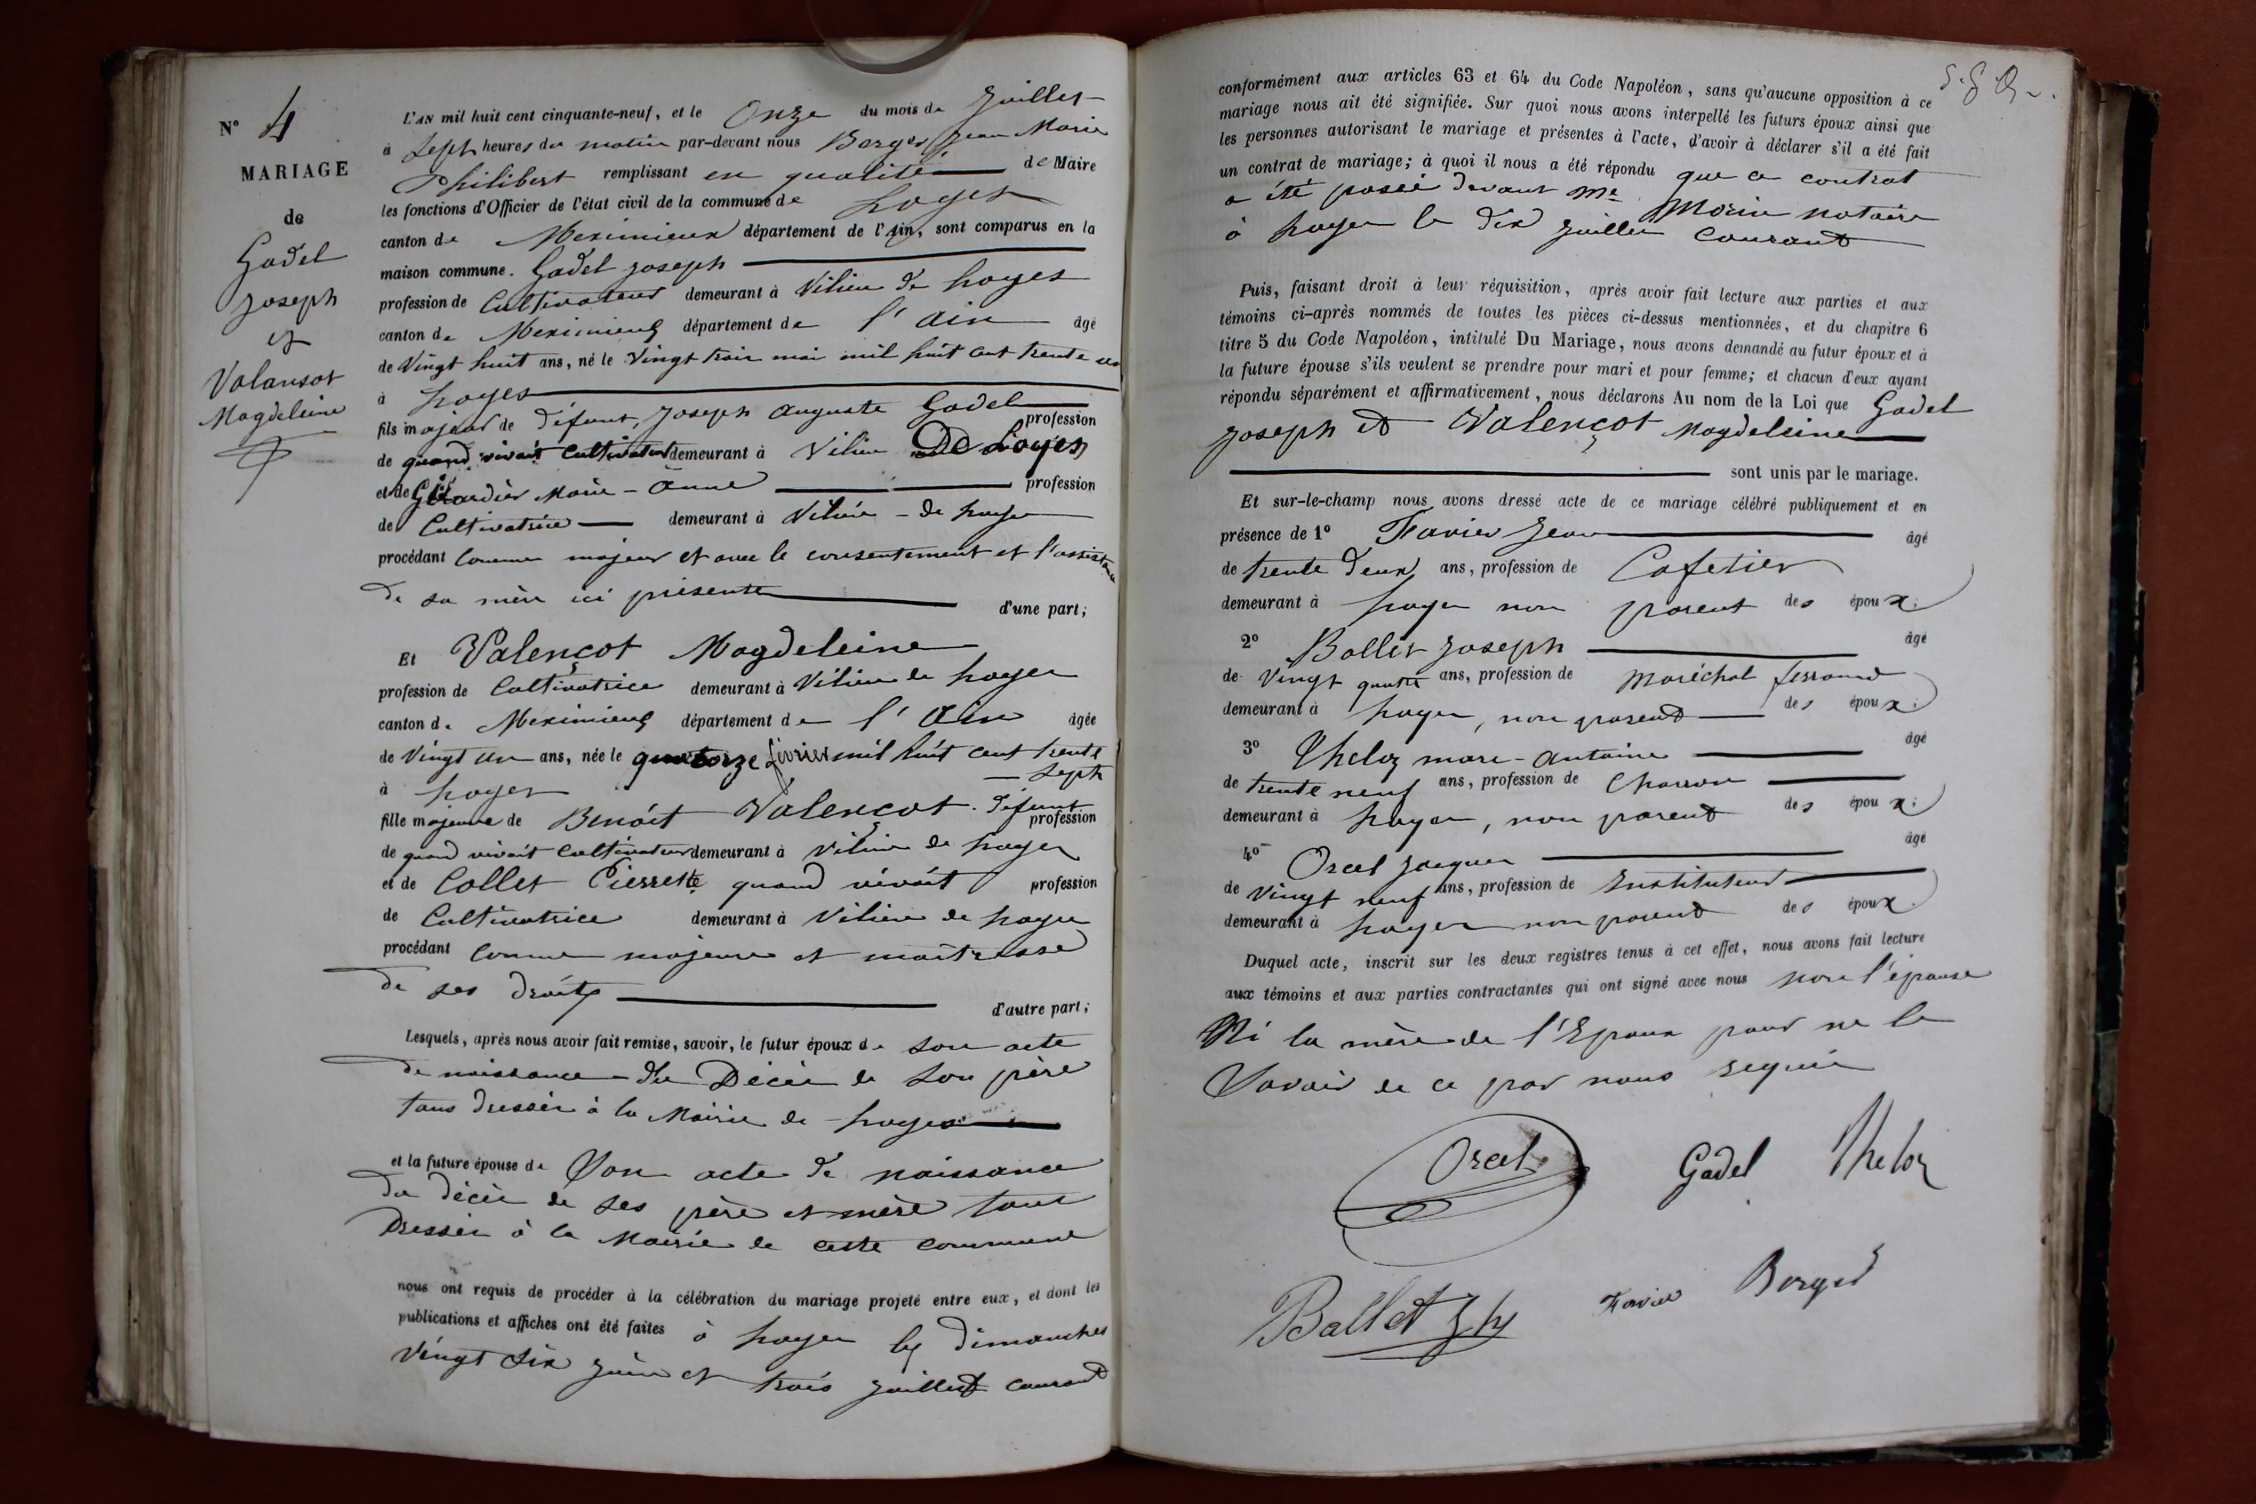 N° 4
MARIAGE
de
Gadel
Joseph
et
Valansot
Magdeleine
L'AN mil huit cent cinquante-neuf, et le Onze du mois de Juillet
à Sept heures du matin par-devant nous Berger Jean Marie
Philibert remplissant en qualité de Maire
les fonctions d'Officier de l'état civil de la commune de Loyes
canton de Meximieux département de l'Ain, sont comparus en la
maison commune. Gadel Joseph
profession de Cultivateur demeurant à Vilieu de Loyes
canton de Meximieux département de l'Ain âgé
de Vingt huit ans, né le Vingt trois mai mil huit cent trente un
à Loyes
fils majeur de défunt, Joseph Auguste Gadel profession
de quand vivait Cultivateur demeurant à Vilieu De Loyes
et de Girardier Marie-Anne profession
de Cultivatrice demeurant à Vilieu-de Loyes
procédant comme majeur et avec le consentement et l'assistance
de sa mère ici présente d'une part;
Et Valençot Magdeleine
profession de Cultivatrice demeurant à Vilieu de Loyes
canton de Meximieux département de l'Ain âgée
de Vingt un ans, née le quatorze février mil huit cent trente
sept
à Loyes
fille majeure de Benoît Valençot. défunt profession
de quand vivait Cultivateur demeurant à Vilieu de Loyes
et de Collet Pierrette quand vivait profession
de Cultivatrice demeurant à Vilieu de Loyes
procédant comme majeure et maîtresse
de ses droits d'autre part;
Lesquels, après nous avoir fait remise, savoir, le futur époux de son acte
de naissance du Décès de son père
tous dressés à la Mairie de Loyes
et la future épouse de Son acte de naissance
du décès de ses père et mère tous
Dressés à la Mairie de cette commune
nous ont requis de procéder à la célébration du mariage projeté entre eux, et dont les
publications et affiches ont été faites à Loyes les dimanches
vingt six juin et trois juillet courant
conformément aux articles 63 et 64 du Code Napoléon, sans qu'aucune opposition à ce
mariage nous ait été signifiée. Sur quoi nous avons interpellé les futurs époux ainsi que
les personnes autorisant le mariage et présentes à l'acte, d'avoir à déclarer s'il a été fait
un contrat de mariage; à quoi il nous a été répondu que ce contrat
a été passé devant Me Morin notaire
à Loyes le dix Juillet courant
Puis, faisant droit à leur réquisition, après avoir fait lecture aux parties et aux
témoins ci-après nommés de toutes les pièces ci-dessus mentionnées, et du chapitre 6
titre 5 du Code Napoléon, intitulé Du Mariage, nous avons demandé au futur époux et à
la future épouse s'ils veulent se prendre pour mari et pour femme; et chacun d'eux ayant
répondu séparément et affirmativement, nous déclarons Au nom de la Loi que Gadel
Joseph et Valençot Magdeleine
sont unis par le mariage.
Et sur-le-champ nous avons dressé acte de ce mariage célébré publiquement et en
présence de 1° Favier Jean âgé
de trente deux ans, profession de Cafetier
demeurant à Loyes non parent des époux;
2° Ballet Joseph âgé
de Vingt quatre ans, profession de Maréchal ferrand
demeurant à Loyes, non parent des époux;
3° Theloz marc-antoine âgé
de trente neuf ans, profession de Charron
demeurant à Loyes, non parent des époux;
4° Orcel Jacques âgé
de Vingt neuf ans, profession de Instituteur
demeurant à Loyes non parent des époux.
Duquel acte, inscrit sur les deux registres tenus à cet effet, nous avons fait lecture
aux témoins et aux parties contractantes qui ont signé avec nous non l'épouse
Ni la mère de l'Epoux pour ne le
Savoir de ce par nous requis
Orcel Gadel Theloz
Ballet Jh Favier Berger